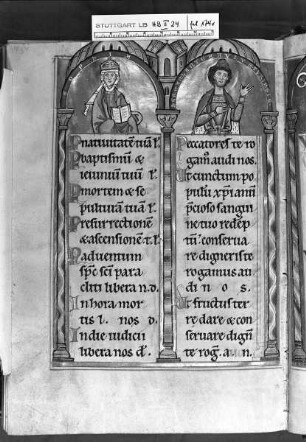 STUTTGART LB HB II 24
P nativitatē tuā l.
P baptismū &
ieiunium tuū l.
P mortem & se
pulturā tuā l.
P resurrectionē
& ascensionē t. l.
P adventum
sp̄c sc̄i para
cliti libera n. d.
In hora mor
tis l. nos d.
In die iudicii
libera nos dē.
Peccatores te ro
gam᷒ audi nos.
Ut cunctum po
pulū xp̄ianū
p̄cioso sangui
ne tuo redēp
tū conserva
re digneris te
rogamus au
di nos.
Ut fructus ter
re dare & con
servare dign̄
te rog̃. a